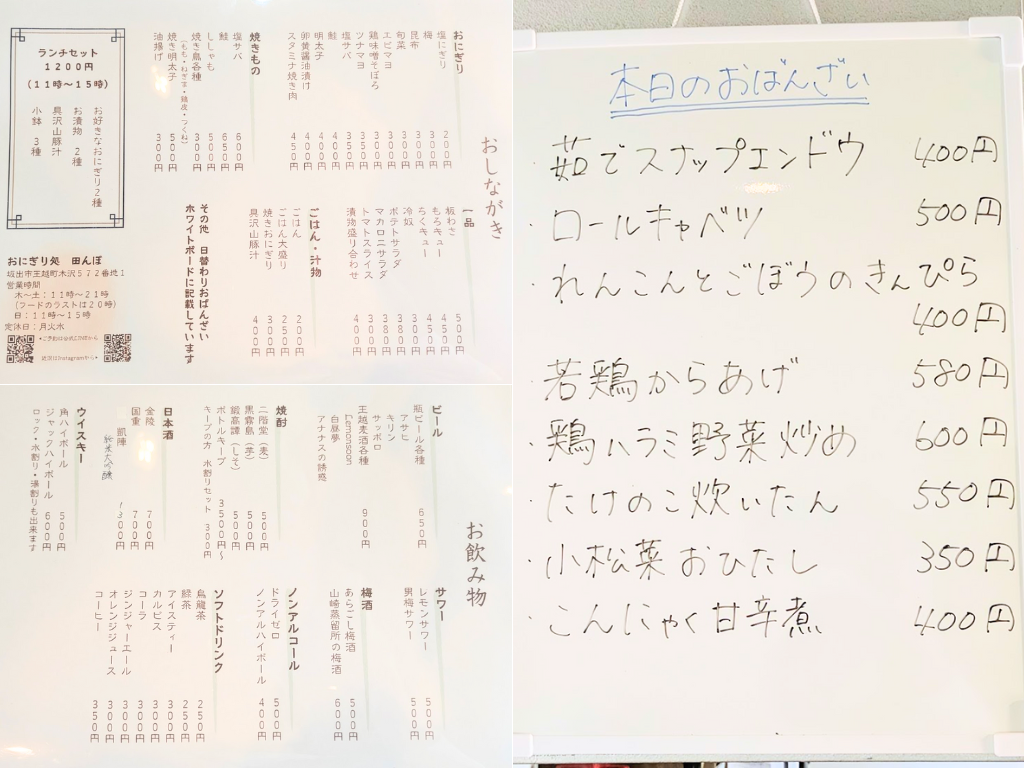 おしながき
おにぎり
塩にぎり 200円
梅 300円
昆布 300円
旬菜 300円
エビマヨ 300円
鶏味噌そぼろ 300円
ツナマヨ 300円
塩サバ 400円
鮭 400円
明太子 400円
卵黄醤油漬け 400円
スタミナ焼き肉 450円
焼きもの
塩サバ 600円
鮭 650円
ししゃも 500円
焼き鳥各種 300円
(もも・ねぎま・鶏皮・つくね)
焼き明太子 500円
油揚げ 300円
一品
板わさ 500円
もろキュー 450円
ちくキュー 450円
冷奴 300円
ポテトサラダ 380円
マカロニサラダ 380円
トマトスライス 300円
漬物盛り合わせ 400円
ごはん・汁物
ごはん 200円
ごはん大盛り 250円
焼きおにぎり 300円
具沢山豚汁 400円
その他 日替わりおばんざい
ホワイトボードに記載しています
ランチセット
1200円
(11時〜15時)
お好きなおにぎり2種
お漬物 2種
具沢山豚汁
小鉢 3種
おにぎり処 田んぼ
坂出市王越町木沢572番地1
営業時間
木〜土:11時〜21時
(フードのラストは20時)
日:11時〜15時
定休日:月火水
お飲み物
ビール
瓶ビール各種 650円
アサヒ
キリン
サッポロ
王越麦酒各種 900円
Lemonsoon
白昼夢
アナナスの誘惑
焼酎
二階堂(麦) 500円
黒霧島(芋) 500円
鍛高譚(しそ) 500円
ボトルキープ 3500円〜
キープの方 水割りセット 300円
日本酒
金陵 700円
国重 700円
凱陣 1300円
純米大吟醸
ウイスキー
角ハイボール 500円
ジャックハイボール 600円
ロック・水割り・湯割りも出来ます
サワー
レモンサワー 500円
男梅サワー 500円
梅酒
あらごし梅酒 500円
山崎蒸留所の梅酒 600円
ノンアルコール
ドライゼロ 500円
ノンアルハイボール 400円
ソフトドリンク
烏龍茶 250円
緑茶 250円
アイスティー 300円
カルピス 300円
コーラ 300円
ジンジャーエール 300円
オレンジジュース 300円
コーヒー 350円
本日のおばんざい
・茹でスナップエンドウ 400円
・ロールキャベツ 500円
・れんこんとごぼうのきんぴら
400円
・若鶏からあげ 580円
・鶏ハラミ野菜炒め 600円
・たけのこ炊いたん 550円
・小松菜おひたし 350円
・こんにゃく甘辛煮 400円